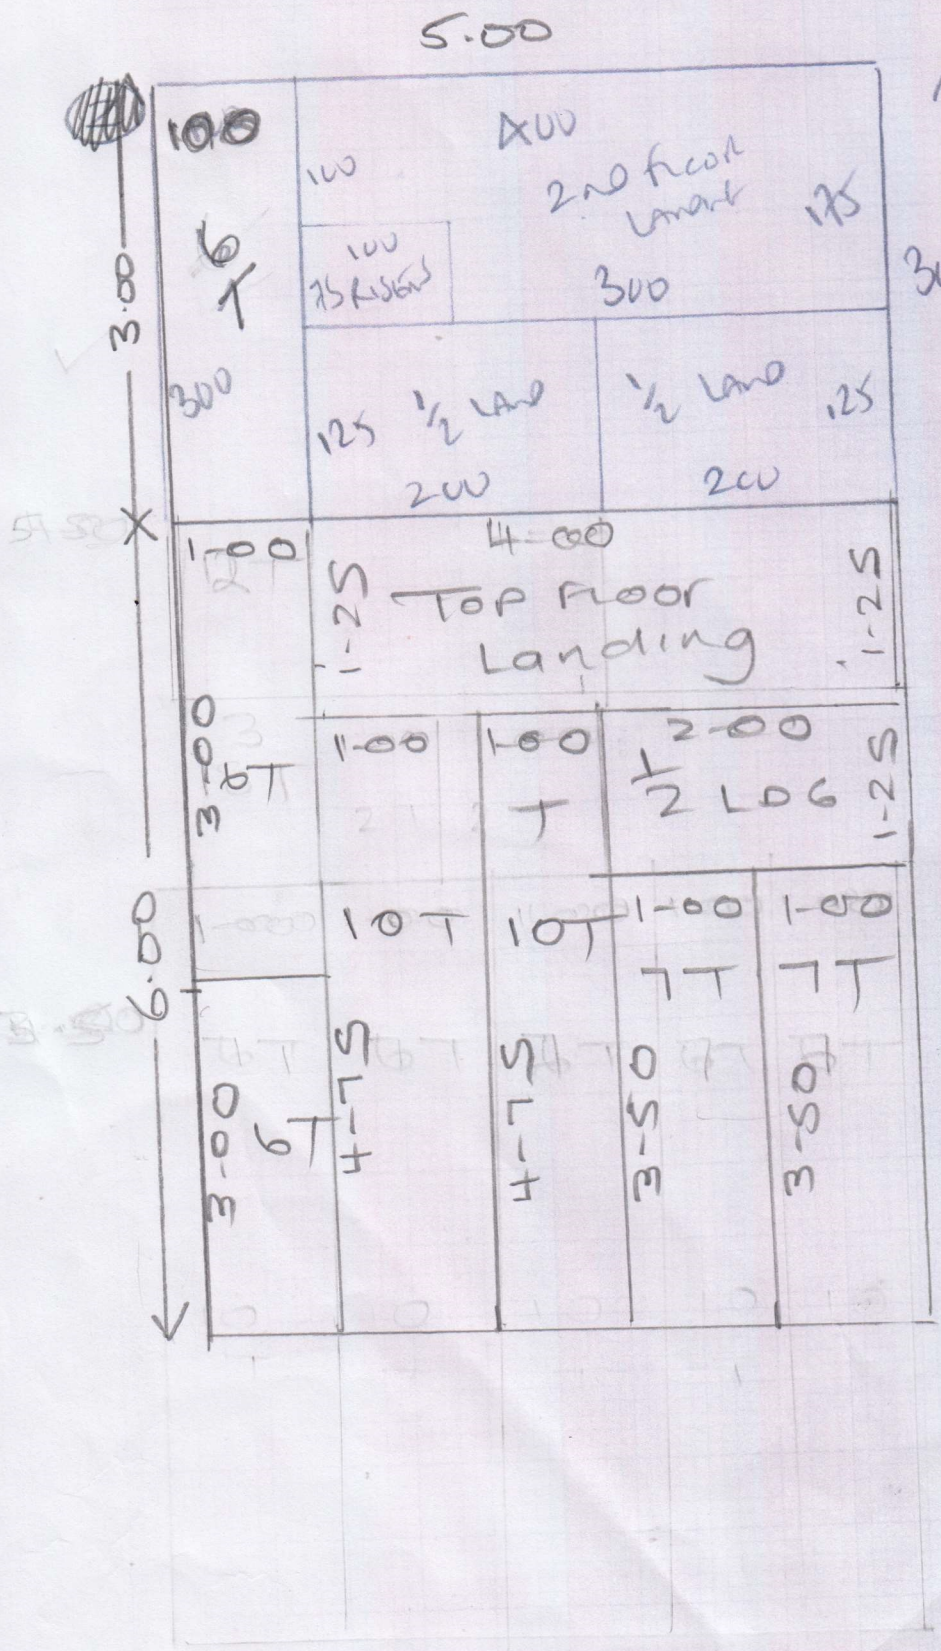 5.00
100
400
100
2nd floor
175
6
T
100
75 RISERS
300
3.00
300
125 1/2 LAND
1/2 LAND 125
200
200
1-00
4-00
1-25
Top Floor
Landing
1-25
3-00
6T
1-00
1-00
T
2-00
1/2 LDG
1-25
6.00
10T
10T
1-00
7T
1-00
7T
3-00
6T
4-75
4-75
3-50
3-50